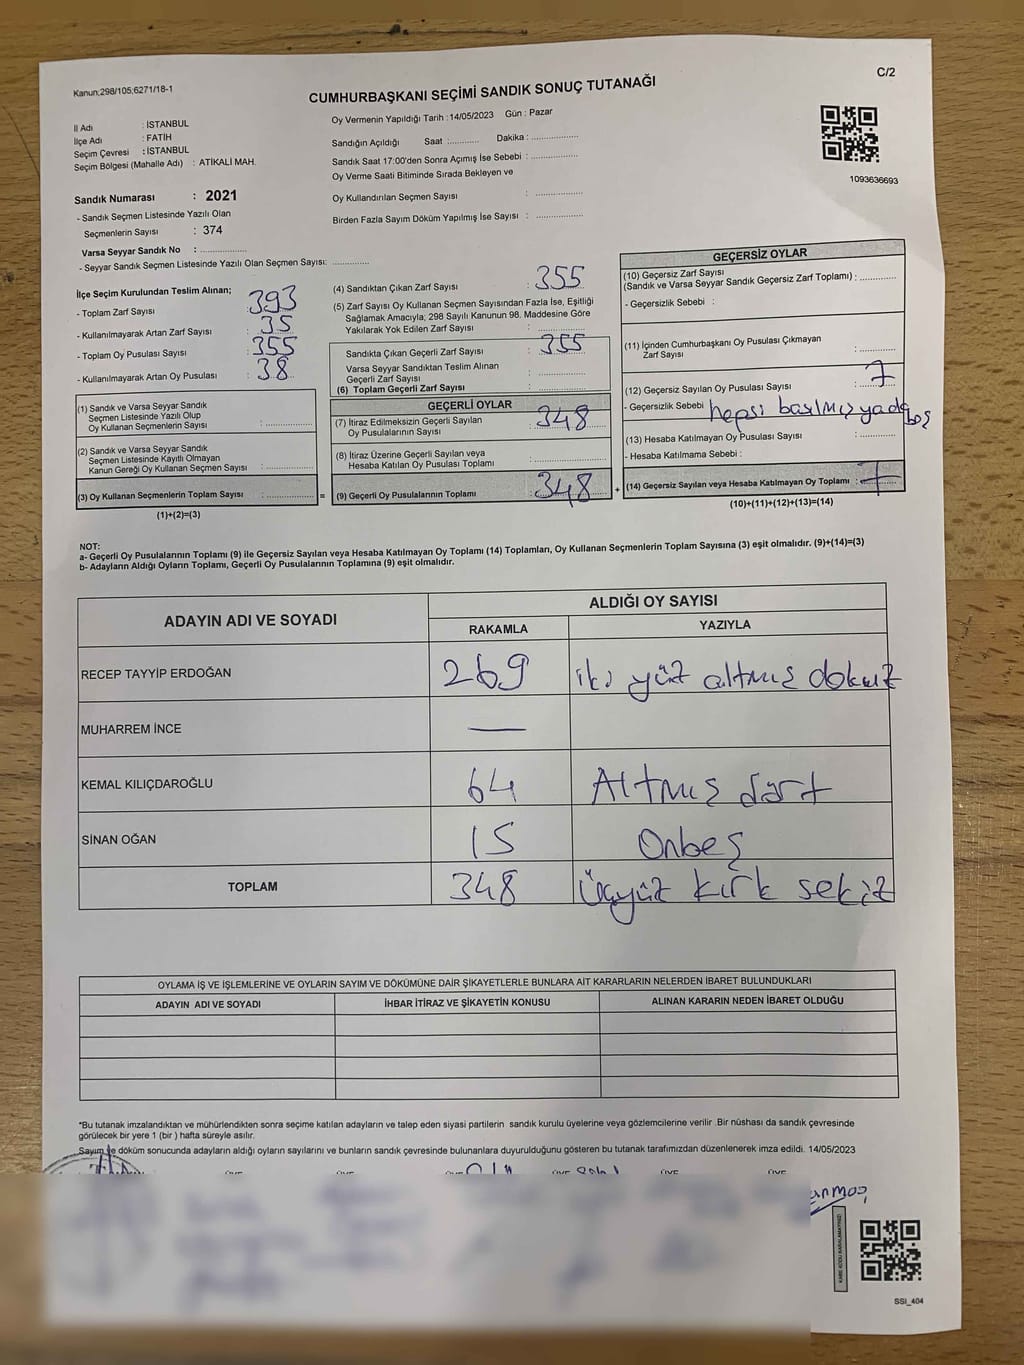 Kanun;298/105;6271/18-1
C/2
CUMHURBAŞKANI SEÇİMİ SANDIK SONUÇ TUTANAĞI
İl Adı : İSTANBUL
İlçe Adı : FATİH
Seçim Çevresi : İSTANBUL
Seçim Bölgesi (Mahalle Adı) : ATİKALİ MAH.
Oy Vermenin Yapıldığı Tarih :14/05/2023 Gün : Pazar
Sandığın Açıldığı Saat :........... Dakika :................
Sandık Saat 17:00'den Sonra Açımış İse Sebebi :................
Oy Verme Saati Bitiminde Sırada Bekleyen ve
Oy Kullandırılan Seçmen Sayısı :................
Birden Fazla Sayım Döküm Yapılmış İse Sayısı :................
1093636693
Sandık Numarası : 2021
- Sandık Seçmen Listesinde Yazılı Olan
Seçmenlerin Sayısı : 374
Varsa Seyyar Sandık No :................
- Seyyar Sandık Seçmen Listesinde Yazılı Olan Seçmen Sayısı:.............
İlçe Seçim Kurulundan Teslim Alınan;
- Toplam Zarf Sayısı : 393
- Kullanılmayarak Artan Zarf Sayısı : 35
- Toplam Oy Pusulası Sayısı : 355
- Kullanılmayarak Artan Oy Pusulası : 38
(1) Sandık ve Varsa Seyyar Sandık
Seçmen Listesinde Yazılı Olup
Oy Kullanan Seçmenlerin Sayısı :................
(2) Sandık ve Varsa Seyyar Sandık
Seçmen Listesinde Kayıtlı Olmayan
Kanun Gereği Oy Kullanan Seçmen Sayısı :................
(3) Oy Kullanan Seçmenlerin Toplam Sayısı :................ =
(1)+(2)=(3)
(4) Sandıktan Çıkan Zarf Sayısı : 355
(5) Zarf Sayısı Oy Kullanan Seçmen Sayısından Fazla İse, Eşitliği
Sağlamak Amacıyla; 298 Sayılı Kanunun 98. Maddesine Göre
Yakılarak Yok Edilen Zarf Sayısı :................
Sandıkta Çıkan Geçerli Zarf Sayısı : 355
Varsa Seyyar Sandıktan Teslim Alınan
Geçerli Zarf Sayısı :................
(6) Toplam Geçerli Zarf Sayısı :................
GEÇERLİ OYLAR
(7) İtiraz Edilmeksizin Geçerli Sayılan
Oy Pusulalarının Sayısı : 348
(8) İtiraz Üzerine Geçerli Sayılan veya
Hesaba Katılan Oy Pusulası Toplamı :................
(9) Geçerli Oy Pusulalarının Toplamı : 348 +
GEÇERSİZ OYLAR
(10) Geçersiz Zarf Sayısı
(Sandık ve Varsa Seyyar Sandık Geçersiz Zarf Toplamı) :............
- Geçersizlik Sebebi :
(11) İçinden Cumhurbaşkanı Oy Pusulası Çıkmayan
Zarf Sayısı :............
(12) Geçersiz Sayılan Oy Pusulası Sayısı : 7
- Geçersizlik Sebebi : hepsi basılmış yada boş
(13) Hesaba Katılmayan Oy Pusulası Sayısı :............
- Hesaba Katılmama Sebebi :
(14) Geçersiz Sayılan veya Hesaba Katılmayan Oy Toplamı : 7
(10)+(11)+(12)+(13)=(14)
NOT:
a- Geçerli Oy Pusulalarının Toplamı (9) ile Geçersiz Sayılan veya Hesaba Katılmayan Oy Toplamı (14) Toplamları, Oy Kullanan Seçmenlerin Toplam Sayısına (3) eşit olmalıdır. (9)+(14)=(3)
b- Adayların Aldığı Oyların Toplamı, Geçerli Oy Pusulalarının Toplamına (9) eşit olmalıdır.
ADAYIN ADI VE SOYADI
ALDIĞI OY SAYISI
RAKAMLA YAZIYLA
RECEP TAYYİP ERDOĞAN 269 iki yüz altmış dokuz
MUHARREM İNCE —
KEMAL KILIÇDAROĞLU 64 Altmış dört
SİNAN OĞAN 15 Onbeş
TOPLAM 348 Üçyüz kırk sekiz
OYLAMA İŞ VE İŞLEMLERİNE VE OYLARIN SAYIM VE DÖKÜMÜNE DAİR ŞİKAYETLERLE BUNLARA AİT KARARLARIN NELERDEN İBARET BULUNDUKLARI
ADAYIN ADI VE SOYADI İHBAR İTİRAZ VE ŞİKAYETİN KONUSU ALINAN KARARIN NEDEN İBARET OLDUĞU
*Bu tutanak imzalandıktan ve mühürlendikten sonra seçime katılan adayların ve talep eden siyasi partilerin sandık kurulu üyelerine veya gözlemcilerine verilir .Bir nüshası da sandık çevresinde
görülecek bir yere 1 (bir ) hafta süreyle asılır.
Sayım ve döküm sonucunda adayların aldığı oyların sayılarını ve bunların sandık çevresinde bulunanlara duyurulduğunu gösteren bu tutanak tarafımızdan düzenlenerek imza edildi. 14/05/2023
KARE KODU KARALAMAYINIZ!
SSI_404